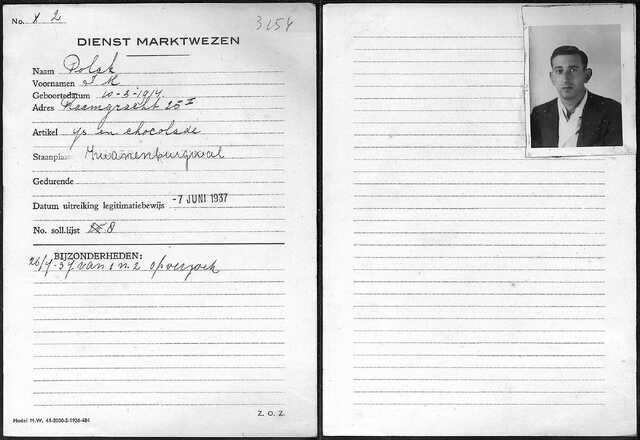 No. X 2
3154
DIENST MARKTWEZEN
Naam Polak
Voornamen M
Geboortedatum 10-5-1914.
Adres 25 I
Artikel ijs en chocolade
Staanplaats
Gedurende
Datum uitreiking legitimatiebewijs -7 JUNI 1937
No. soll.lijst 8
BIJZONDERHEDEN:
26/7-37 van 1 n. 2 op verzoek
Z. O. Z.
Model M.W. 44-2000-2-1936-484